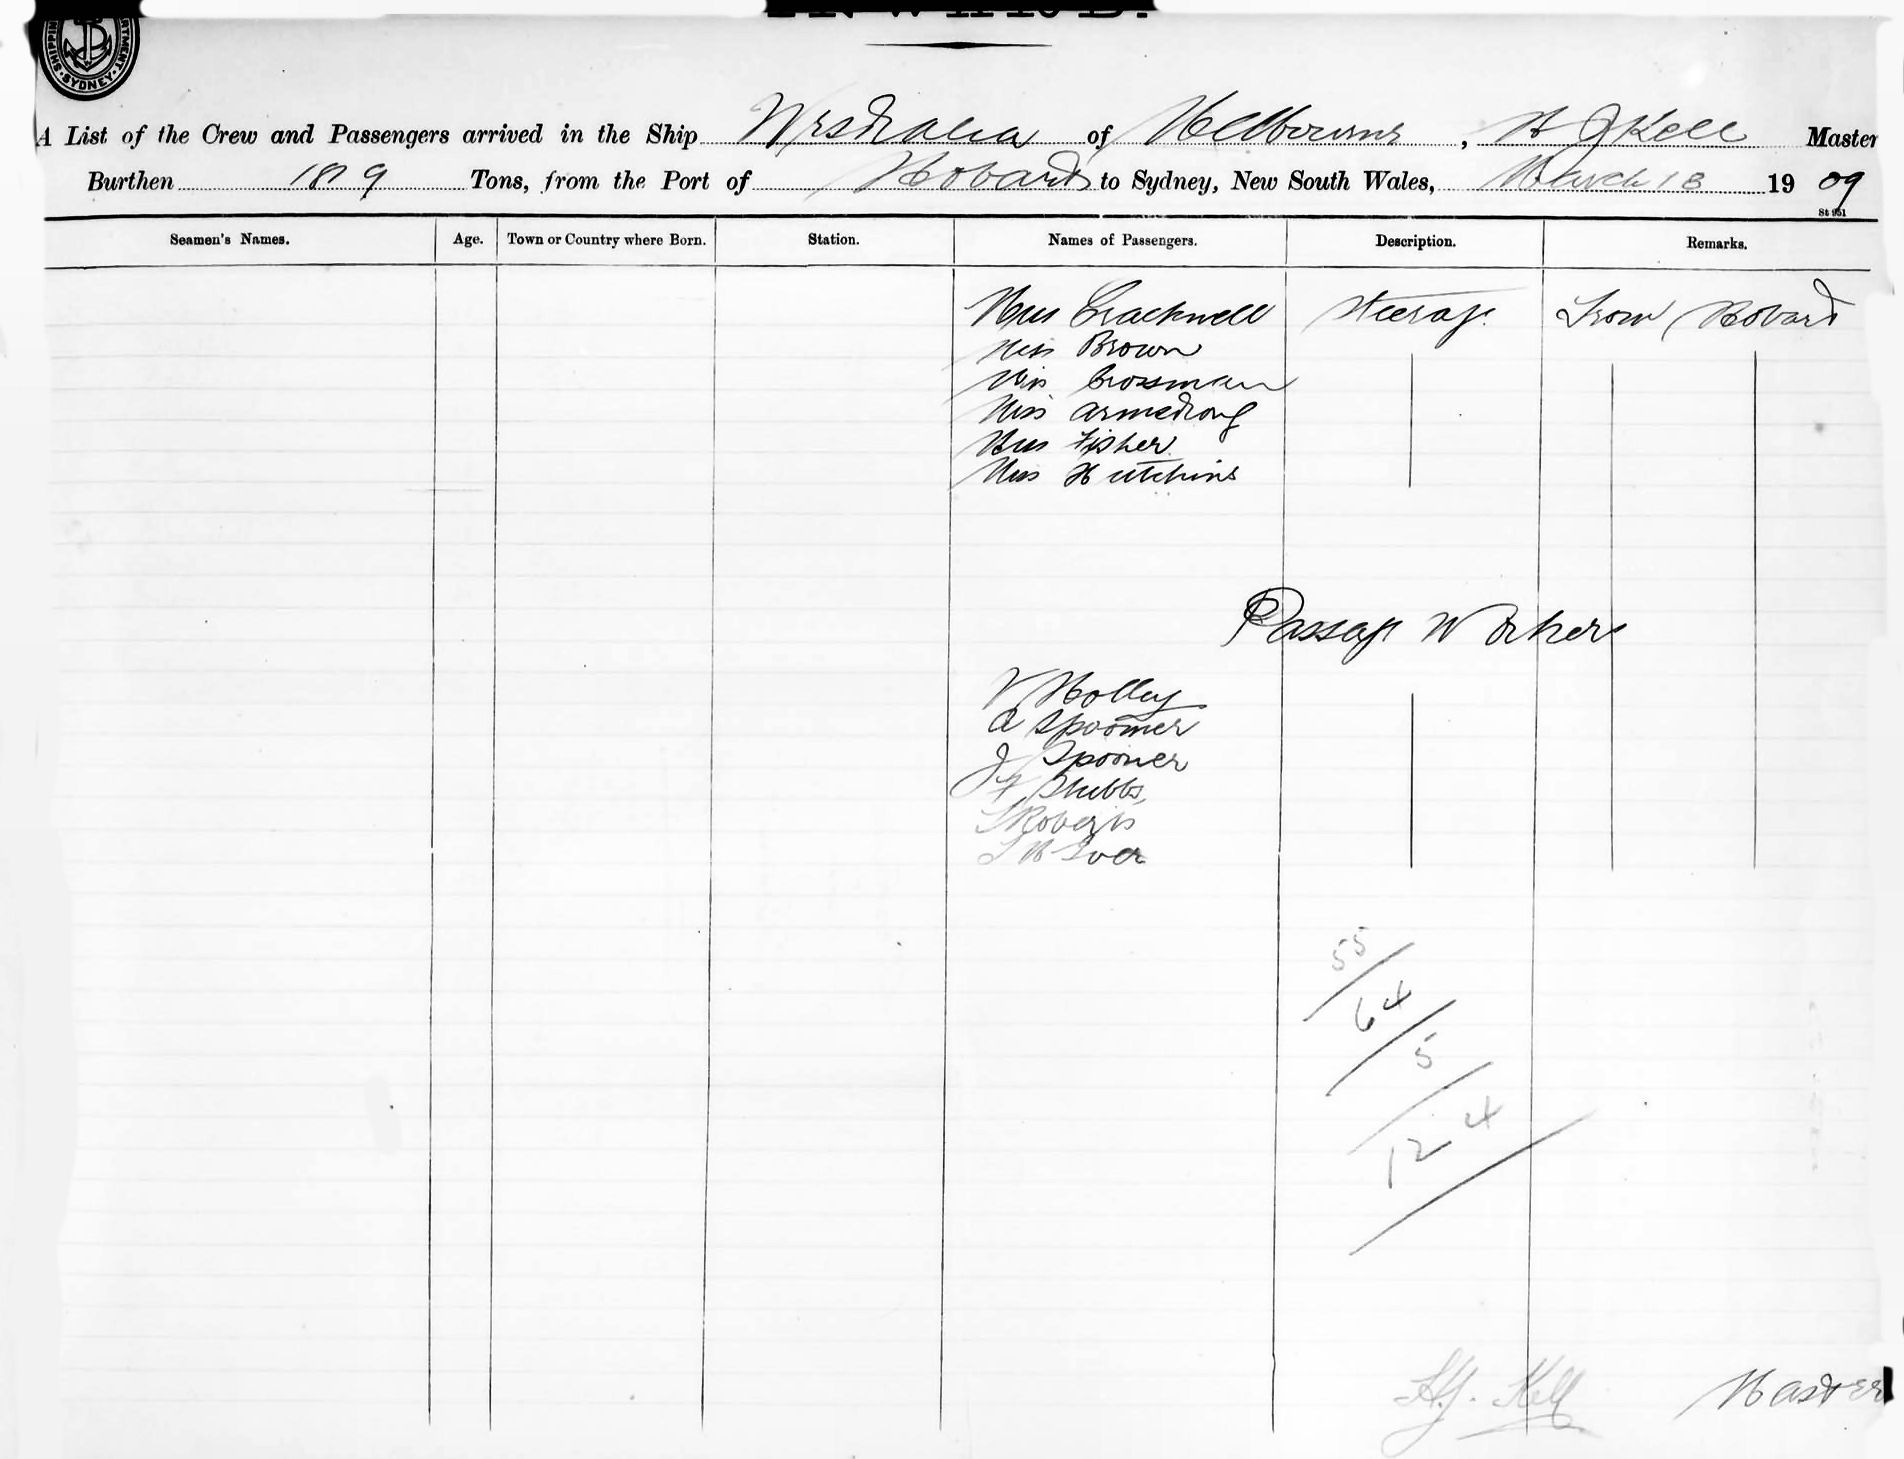 INWARD.
SHIPPING SYDNEY
A List of the Crew and Passengers arrived in the Ship Westralia of Melbourne, H J Kell Master
Burthen 1819 Tons, from the Port of Hobart to Sydney, New South Wales, March 18 1909
St 951
Seamen's Names. Age. Town or Country where Born. Station. Names of Passengers. Description. Remarks.
Cracknell Steerage From Hobart
Miss Brown
Miss Crossman
Miss Armstrong
Fisher
Hutchins
Passage Workers
V Holley
A Spooner
J Spooner
Stubbs
Roberts
55
64
5
124
H.J. Kell Master